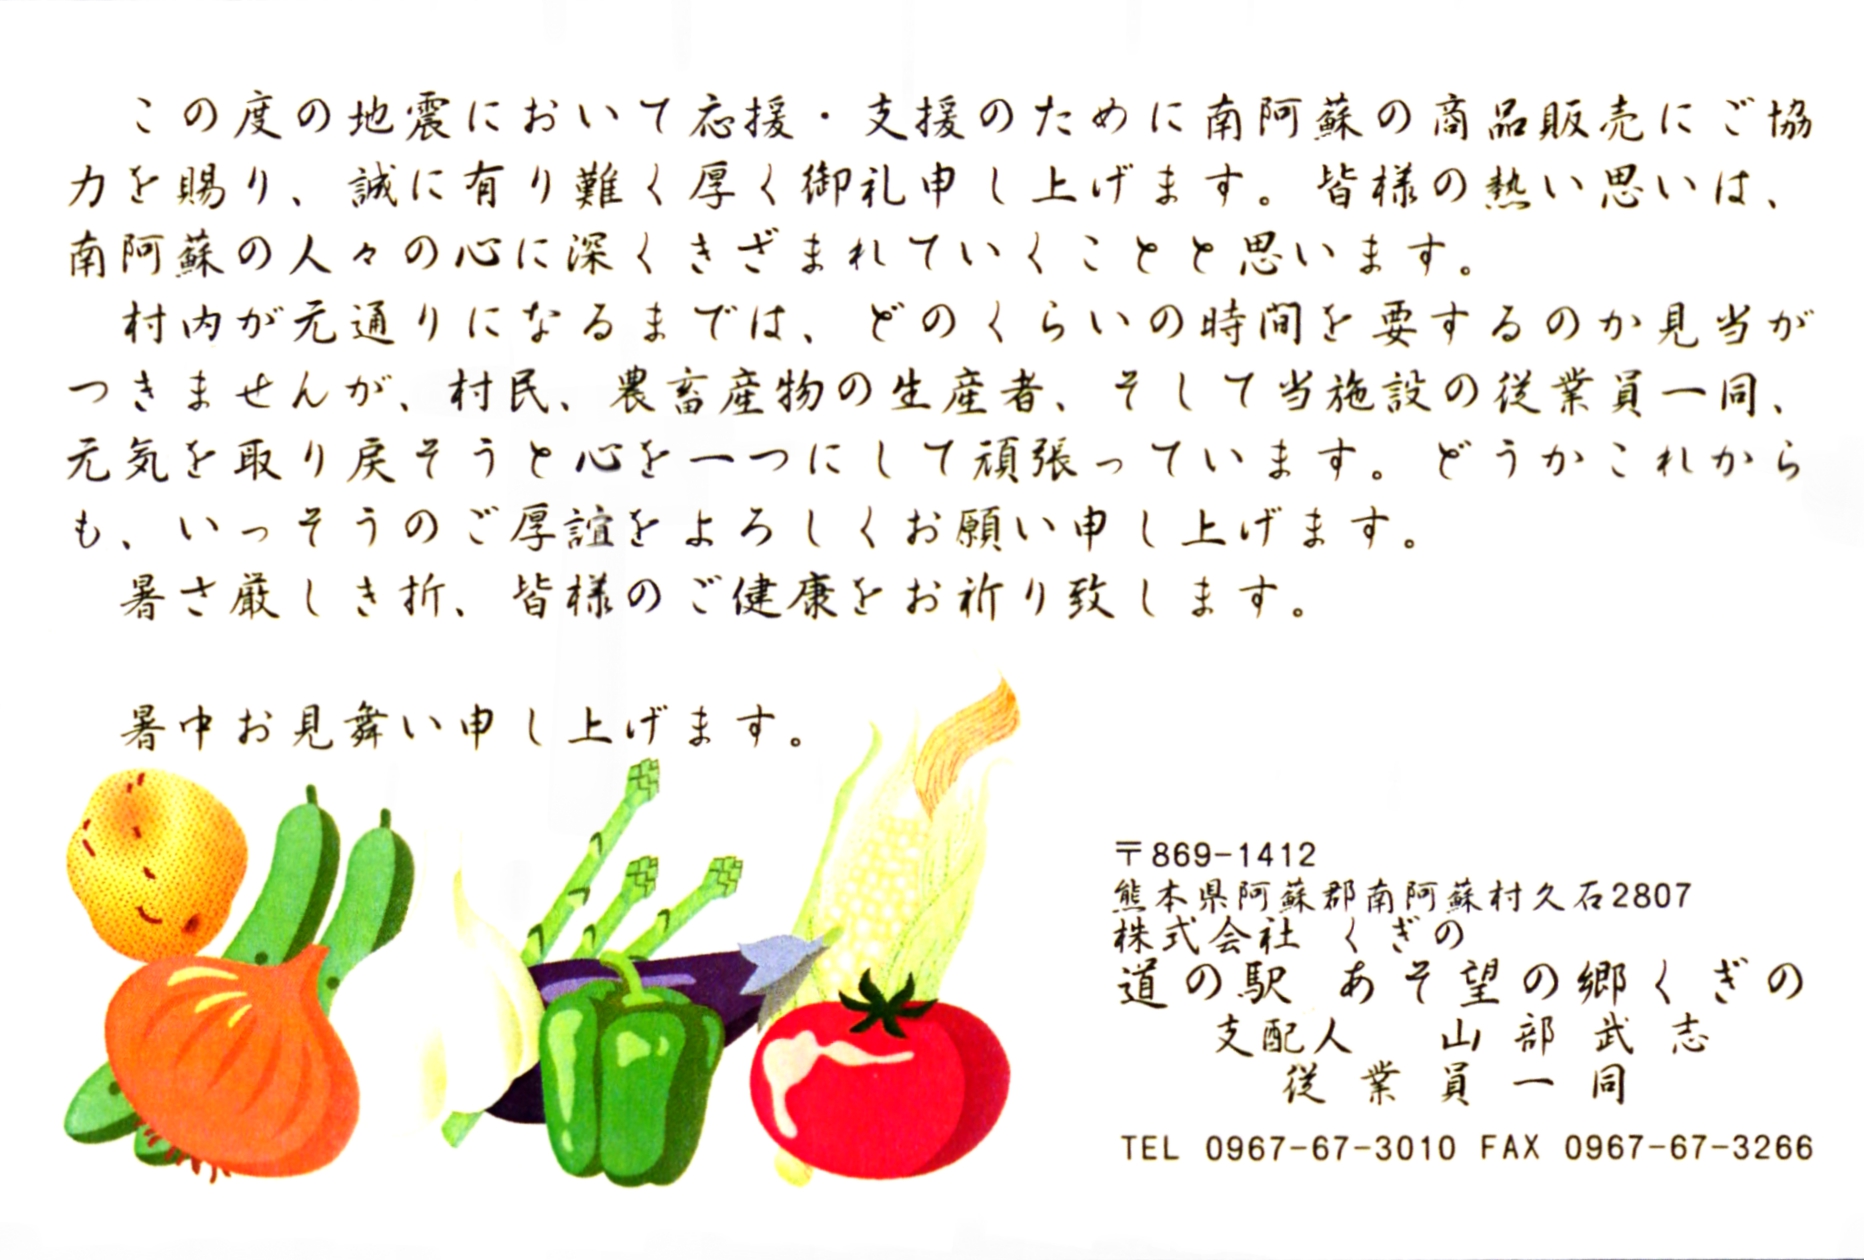 この度の地震において応援・支援のために南阿蘇の商品販売にご協
力を賜り、誠に有り難く厚く御礼申し上げます。皆様の熱い思いは、
南阿蘇の人々の心に深くきざまれていくことと思います。
村内が元通りになるまでは、どのくらいの時間を要するのか見当が
つきませんが、村民、農畜産物の生産者、そして当施設の従業員一同、
元気を取り戻そうと心を一つにして頑張っています。どうかこれから
も、いっそうのご厚誼をよろしくお願い申し上げます。
暑さ厳しき折、皆様のご健康をお祈り致します。
暑中お見舞い申し上げます。
〒869-1412
熊本県阿蘇郡南阿蘇村久石2807
株式会社 くぎの
道の駅 あそ望の郷くぎの
支配人 山部武志
従業員一同
TEL 0967-67-3010 FAX 0967-67-3266